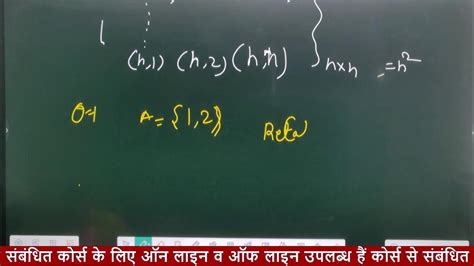 (n,1) (n,2) (n,n) } n×n = n²
Q-1 A = {1,2}
संबंधित कोर्स के लिए ऑन लाइन व ऑफ लाइन उपलब्ध हैं कोर्स से संबंधित